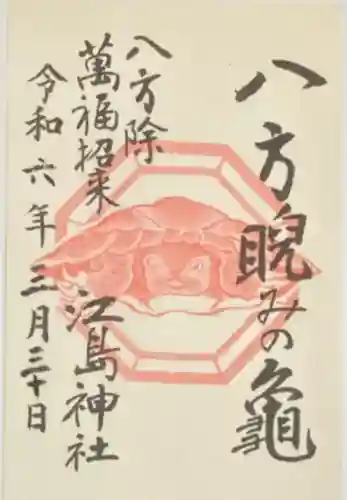 八方睨みの龜
八方除
萬福招来
江島神社
令和六年三月三十日